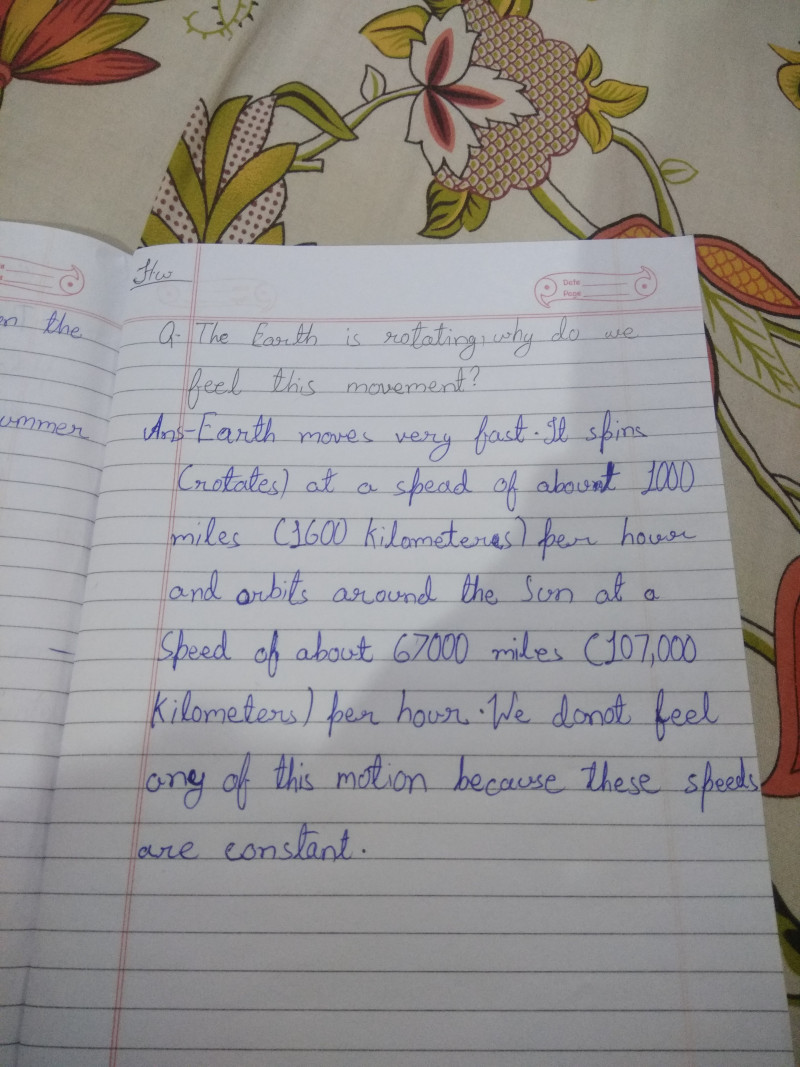 en the
ummer
Hw
Date
Page
Q- The Earth is rotating, why do we
feel this movement?
Ans- Earth moves very fast. It spins
(rotates) at a spead of about 1000
miles (1600 kilometeres) per hour
and orbits around the Sun at a
Speed of about 67000 miles (107,000
Kilometers) per hour. We donot feel
any of this motion because these speeds
are constant.